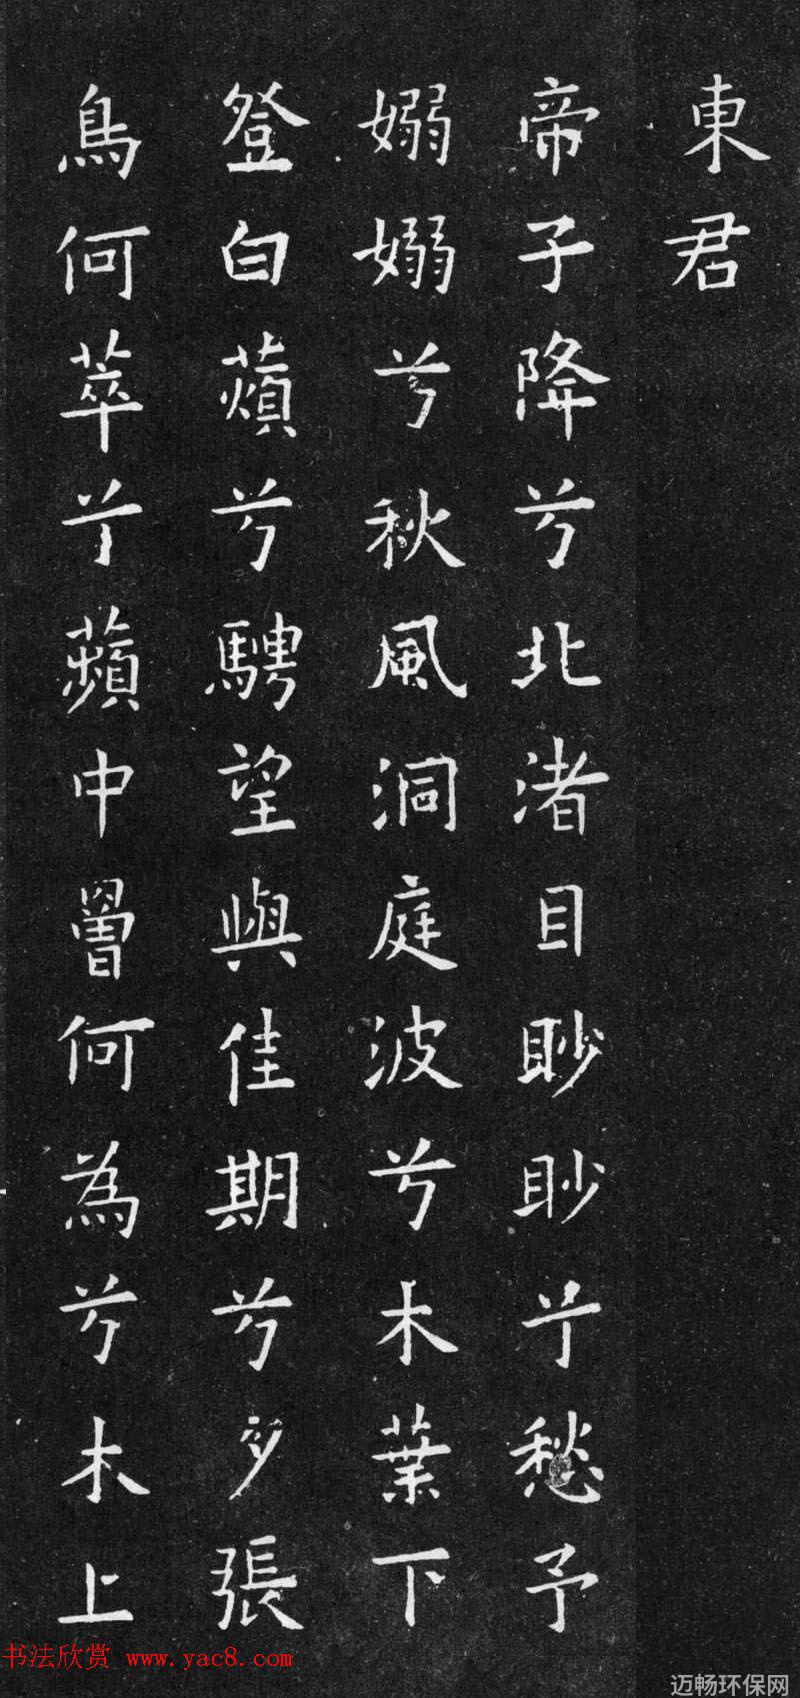 東君
帝子降兮北渚目眇眇兮愁予
嫋嫋兮秋風洞庭波兮木葉下
登白薠兮騁望與佳期兮夕張
鳥何萃兮蘋中罾何為兮木上
书法欣赏 www.yac8.com
迈畅环保网